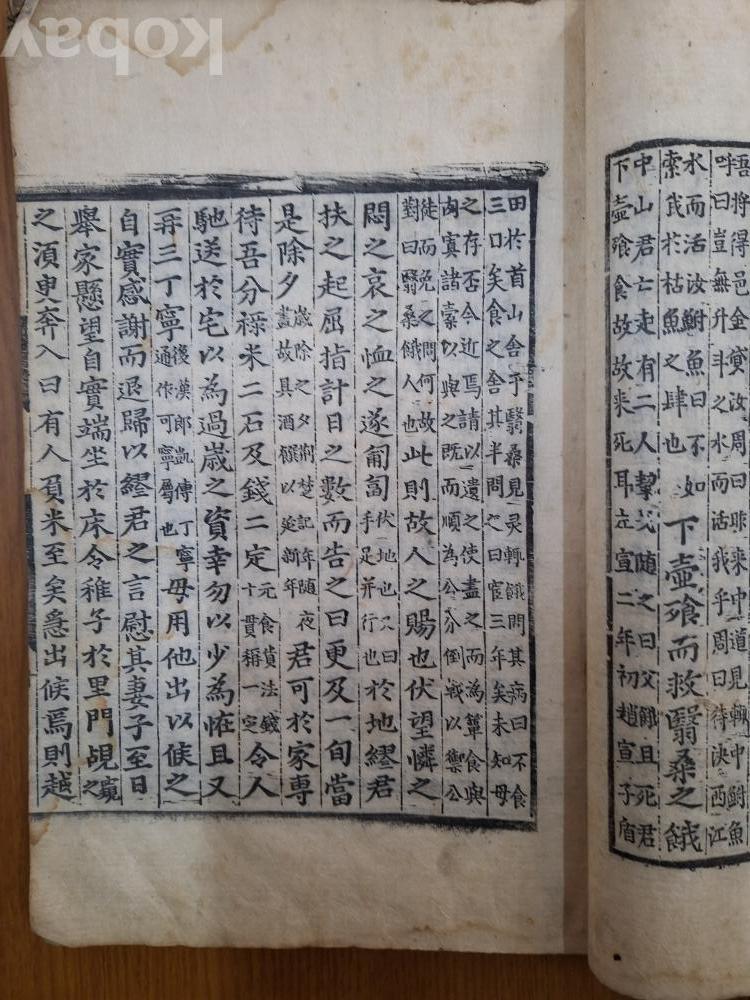 吾將得邑金貸汝周曰昨来中道見轍中鮒魚
呼曰豈無升斗之水而活我乎周曰待決西江
水而活汝鮒魚曰不如
索我於枯魚之肆也
下壺飱而救翳桑之餓
中山君亡走有二人挈戈随之曰父餓且死君
下壺飱食故故来死耳左宣二年初趙宣子盾
田於首山舍于翳桑見灵輒餓問其病曰不食
三日矣食之舍其半問之曰宦三年矣未知母
之存否今近焉請以遺之使盡之而為簞食與
肉寘諸橐以與之既而為公介倒戟以禦公
徒而免之問何故
對曰翳桑餓人也
此則故人之賜也伏望憐之
悶之哀之恤之遂匍匐伏地也又曰手足并行也於地繆君
扶之起屈指計日之數而告之曰更及一旬當
是除夕歳除之夕荊楚記年随夜盡故具酒餚以延新年君可於家專
待吾分禄米二石及錢二定元食貨法錢十貫稱一定令人
馳送於宅以為過歳之資幸勿以少為恠且又
再三丁寧後漢郎凱傳丁寧通作可寧屬也毋用他出以候之
自實感謝而退歸以繆君之言慰其妻子至日
舉家懸望自實端坐於床令稚子於里門覘窺之
之湏臾奔入曰有人負米至矣急出候焉則越
kobay